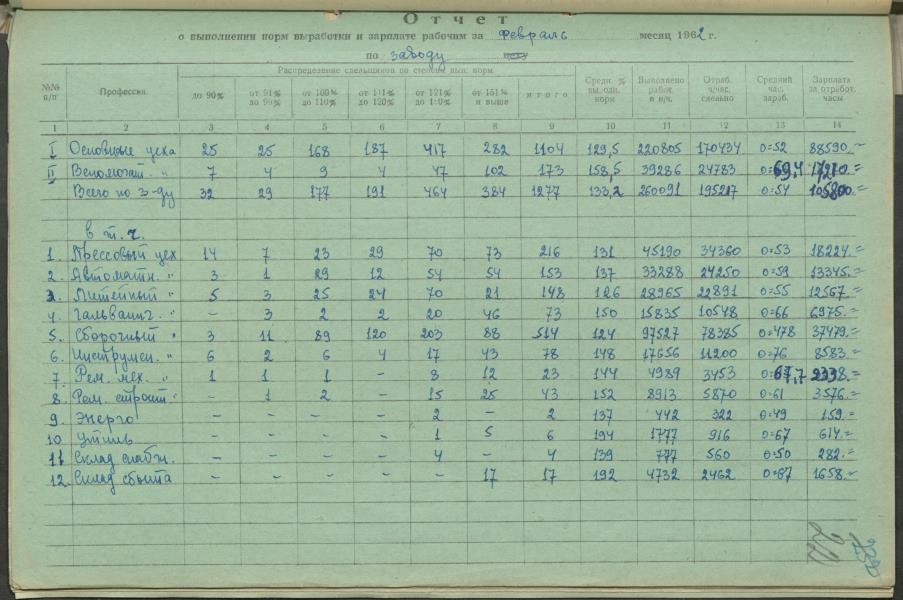 Отчет
о выполнении норм выработки и зарплате рабочим за февраль месяц 1962 г.
по заводу цеху
Распределение сдельщиков по степени вып. норм
№№ п/п Профессия до 90% от 91% до 99% от 100% до 110% от 111% до 120% от 121% до 150% от 151% и выше итого Средн. % вып. норм Выполнено работ в н/ч. Отраб. ч/час. сдельно Средний час. зараб. Зарплата за отработ. часы
1 2 3 4 5 6 7 8 9 10 11 12 13 14
I Основные цеха 25 25 168 187 417 282 1104 129,5 220805 170434 0=52 88590.=
II Вспомогат. " 7 4 9 4 47 102 173 158,5 39286 24783 0=69,4 17210.=
Всего по з-ду 32 29 177 191 464 384 1277 133,2 260091 195217 0=54 105800.=
в т.ч.
1. Прессовый цех 14 7 23 29 70 73 216 131 45190 34360 0=53 18224.=
2. Автоматн. " 3 1 29 12 54 54 153 137 33288 24250 0=59 13345.=
3. Литейный " 5 3 25 24 70 21 148 126 28965 22891 0=55 12567.=
4. Гальванич. " – 3 2 2 20 46 73 150 15835 10548 0=66 6975.=
5. Сборочный " 3 11 89 120 203 88 514 124 97527 78385 0=478 37479.=
6. Инструмен. " 6 2 6 4 17 43 78 148 17656 11200 0=76 8583.=
7. Рем. мех. " 1 1 1 – 8 12 23 144 4989 3453 0=67,7 2338.=
8. Рем. строит. " – 1 2 – 15 25 43 152 8913 5870 0=61 3576.=
9. Энерго – – – – 2 – 2 137 442 322 0=49 159.=
10 Утиль – – – – 1 5 6 194 1777 916 0=67 614.=
11 Склад снабж. – – – – 4 – 4 139 777 560 0=50 282.=
12. Склад сбыта – – – – – 17 17 192 4732 2462 0=67 1658.=